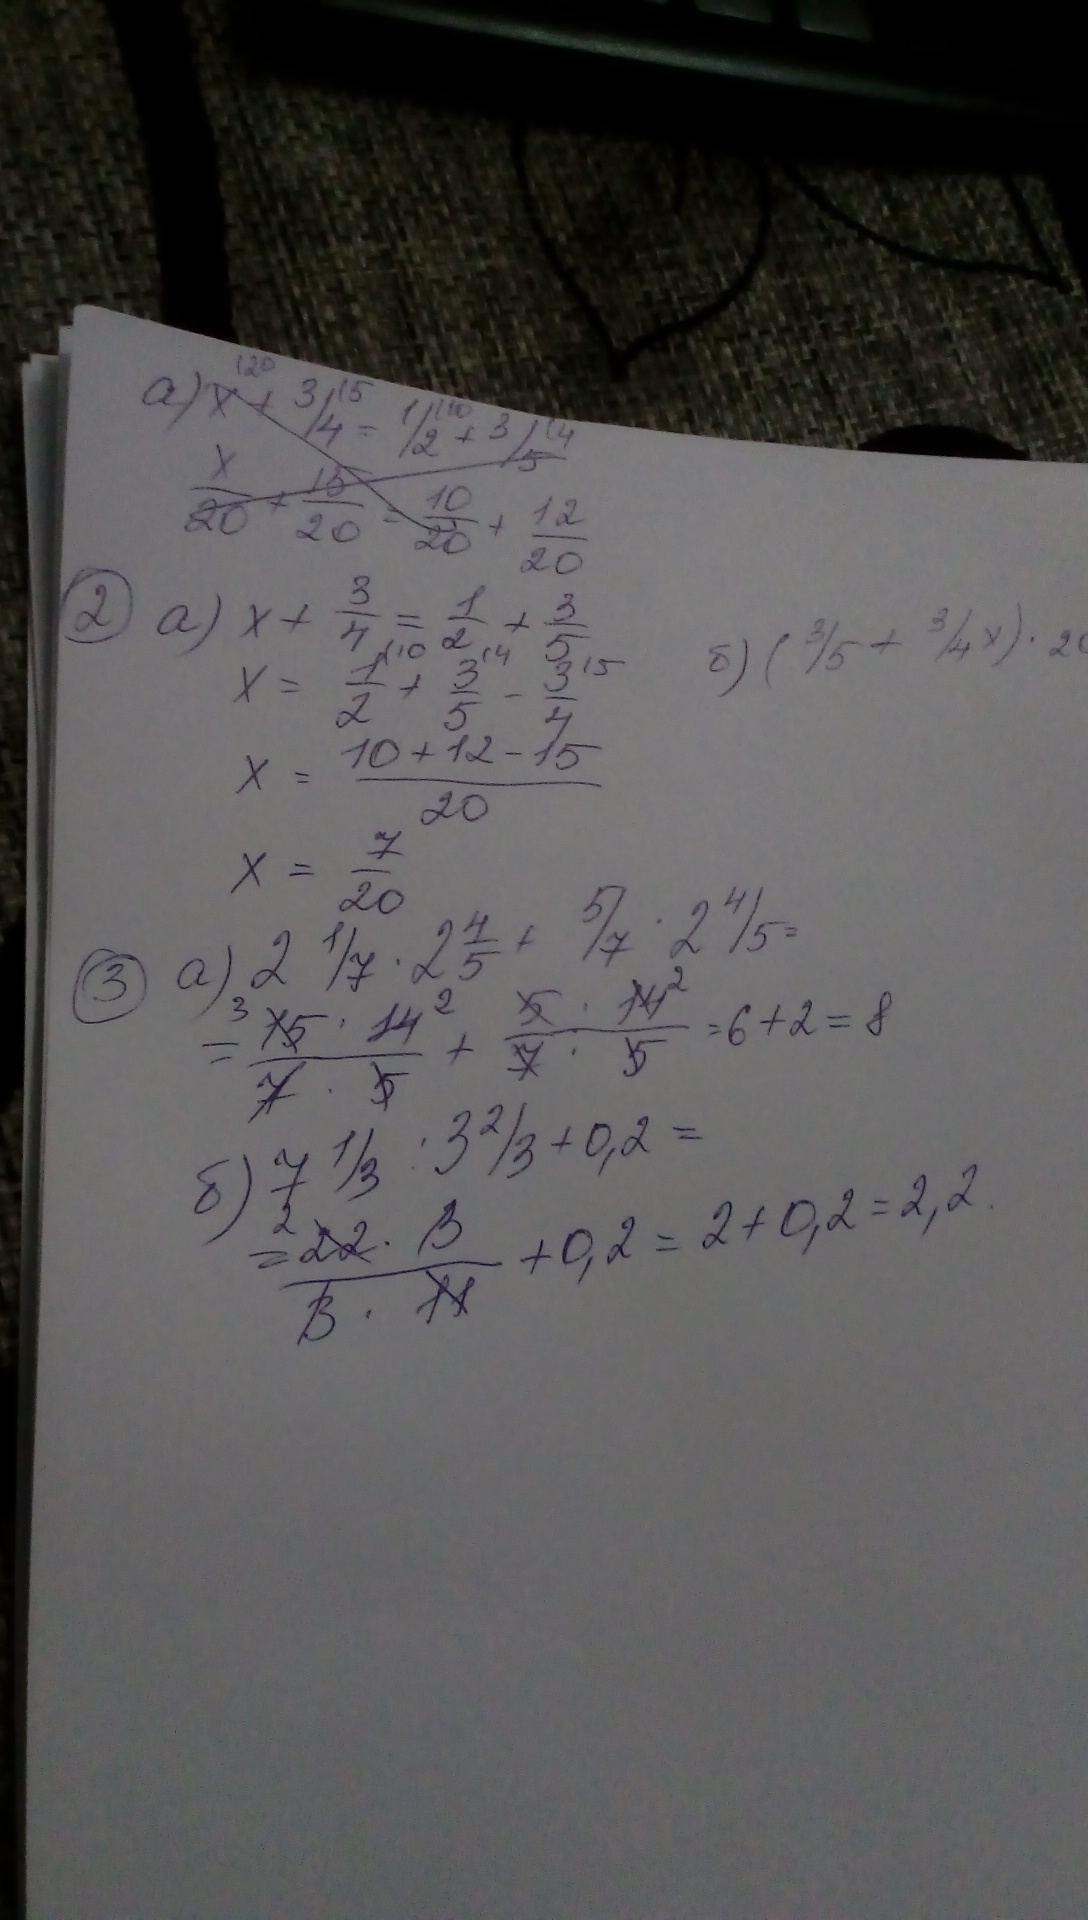 а) x⁽²⁰ + 3/4⁽⁵ = 1/2⁽¹⁰ + 3/5⁽⁴
x/20 + 15/20 = 10/20 + 12/20
② а) x + 3/4 = 1/2 + 3/5
б) (3/5 + 3/4x) · 20
x = 1/2⁽¹⁰ + 3/5⁽⁴ - 3/4⁽⁵
x = (10 + 12 - 15)/20
x = 7/20
③ а) 2 1/7 · 2 4/5 + 5/7 · 2 4/5 =
= ³15 · 14²/7 · 5 + 5 · 14²/7 · 5 = 6 + 2 = 8
б) 7 1/3 : 3 2/3 + 0,2 =
= ²22 · 3/3 · 11 + 0,2 = 2 + 0,2 = 2,2.